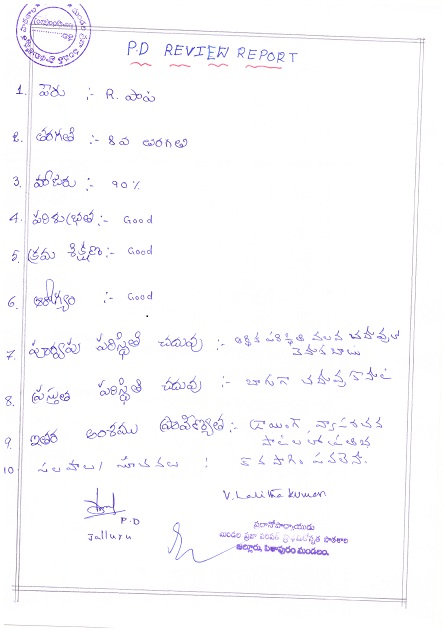 P.D REVIEW REPORT
1. పేరు :- R. పాప
2. తరగతి :- 8 వ తరగతి
3. హాజరు :- 90%
4. పరిశుభ్రత :- Good
5. క్రమ శిక్షణ :- Good
6. ఆరోగ్యం :- Good
7. పూర్వపు పరిస్థితి చదువు :- ఆర్థిక పరిస్థితి వలన చదువులో
వెనుకబాటు
8. ప్రస్తుత పరిస్థితి చదువు :- బాగుగా
9. ఇతర అంశము :- డ్రాయింగ్, వ్యాసరచన
10 సలహాలు / సూచనలు : కొనసాగించవలెను.
V. Lalitha Kumari
P.D
Jalluru
ప్రధానోపాధ్యాయుడు
మండల ప్రజా పరిషత్ ప్రాథమికోన్నత పాఠశాల
జల్లూరు, పిఠాపురం మండలం.